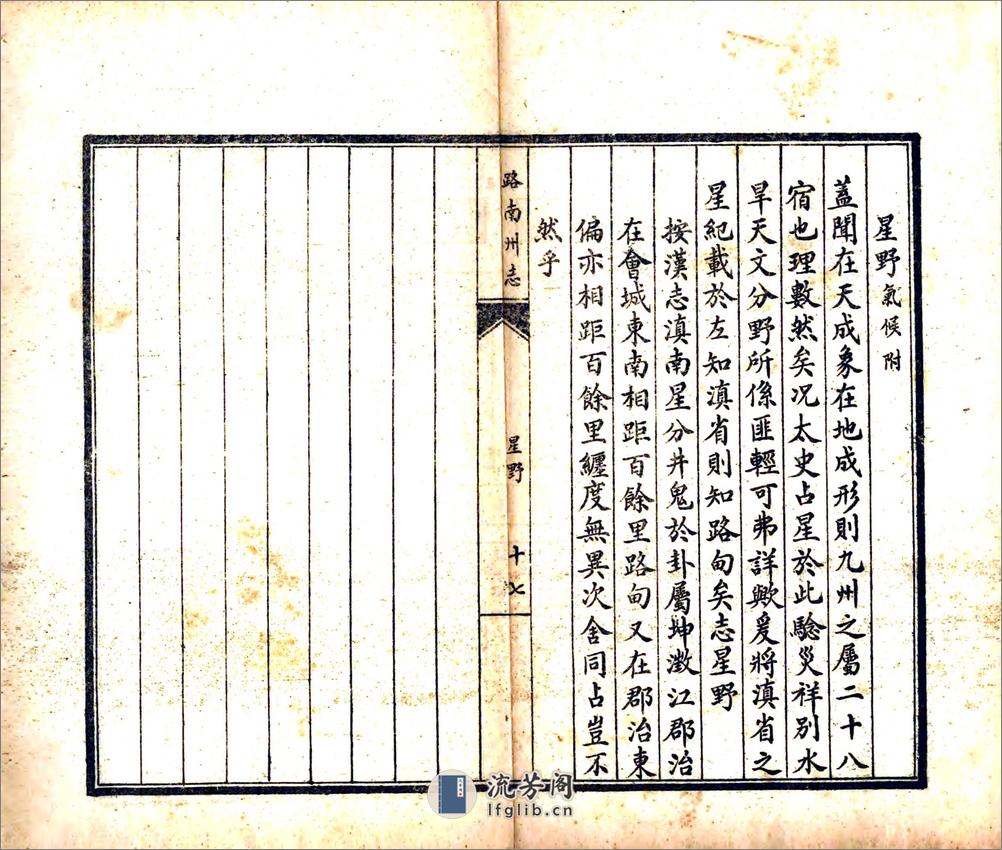 星野氣候附
蓋聞在天成象在地成形則九州之屬二十八
宿也理數然矣况太史占星於此騐災祥别水
旱天文分野所係匪輕可弗詳歟爰將滇省之
星紀載於左知滇省則知路甸矣志星野
按漢志滇南星分井鬼於卦屬坤澂江郡治
在會城東南相距百餘里路甸又在郡治東
偏亦相距百餘里纏度無異次舍同占豈不
然乎
路南州志
星野
十七
流芳阁
lfglib.cn